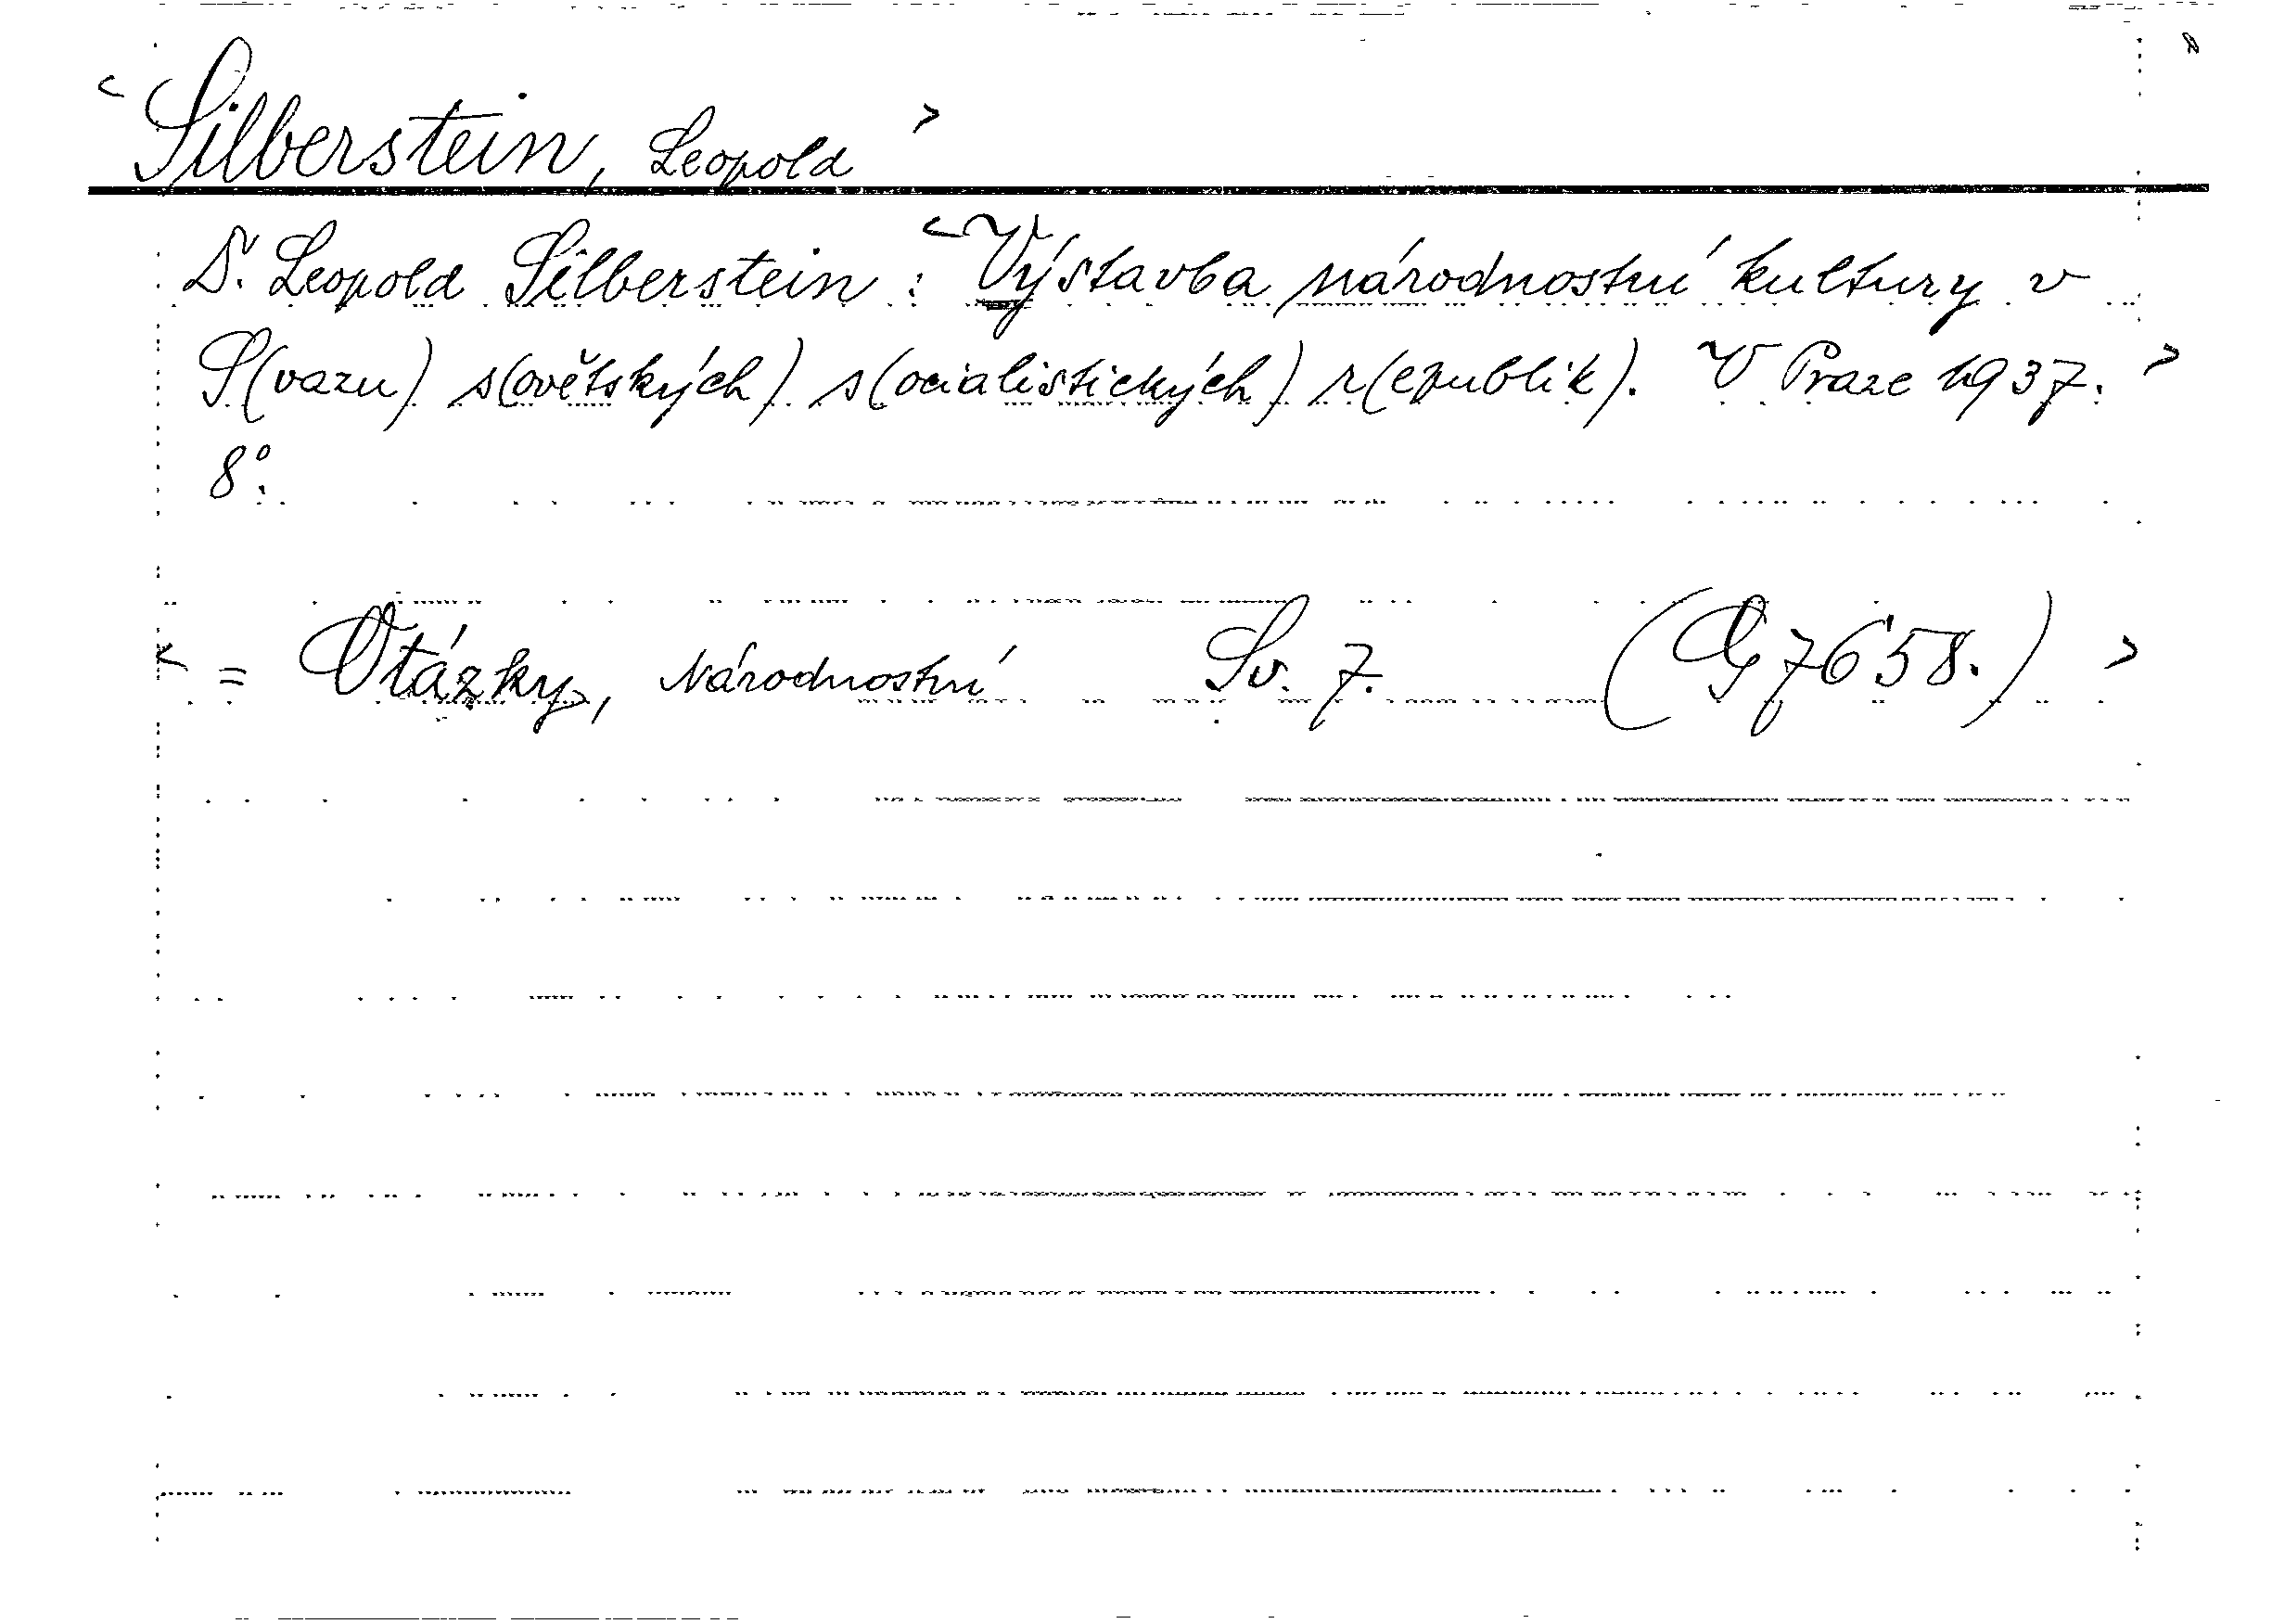 < Silberstein, Leopold >
Dr. Leopold Silberstein : < Výstavba národnostní kultury v
S(vazu) s(ovětských) s(ocialistických) r(epublik). V Praze 1937. >
8°.
< = Otázky, Národnostní Sv. 7. (G 7658.) >